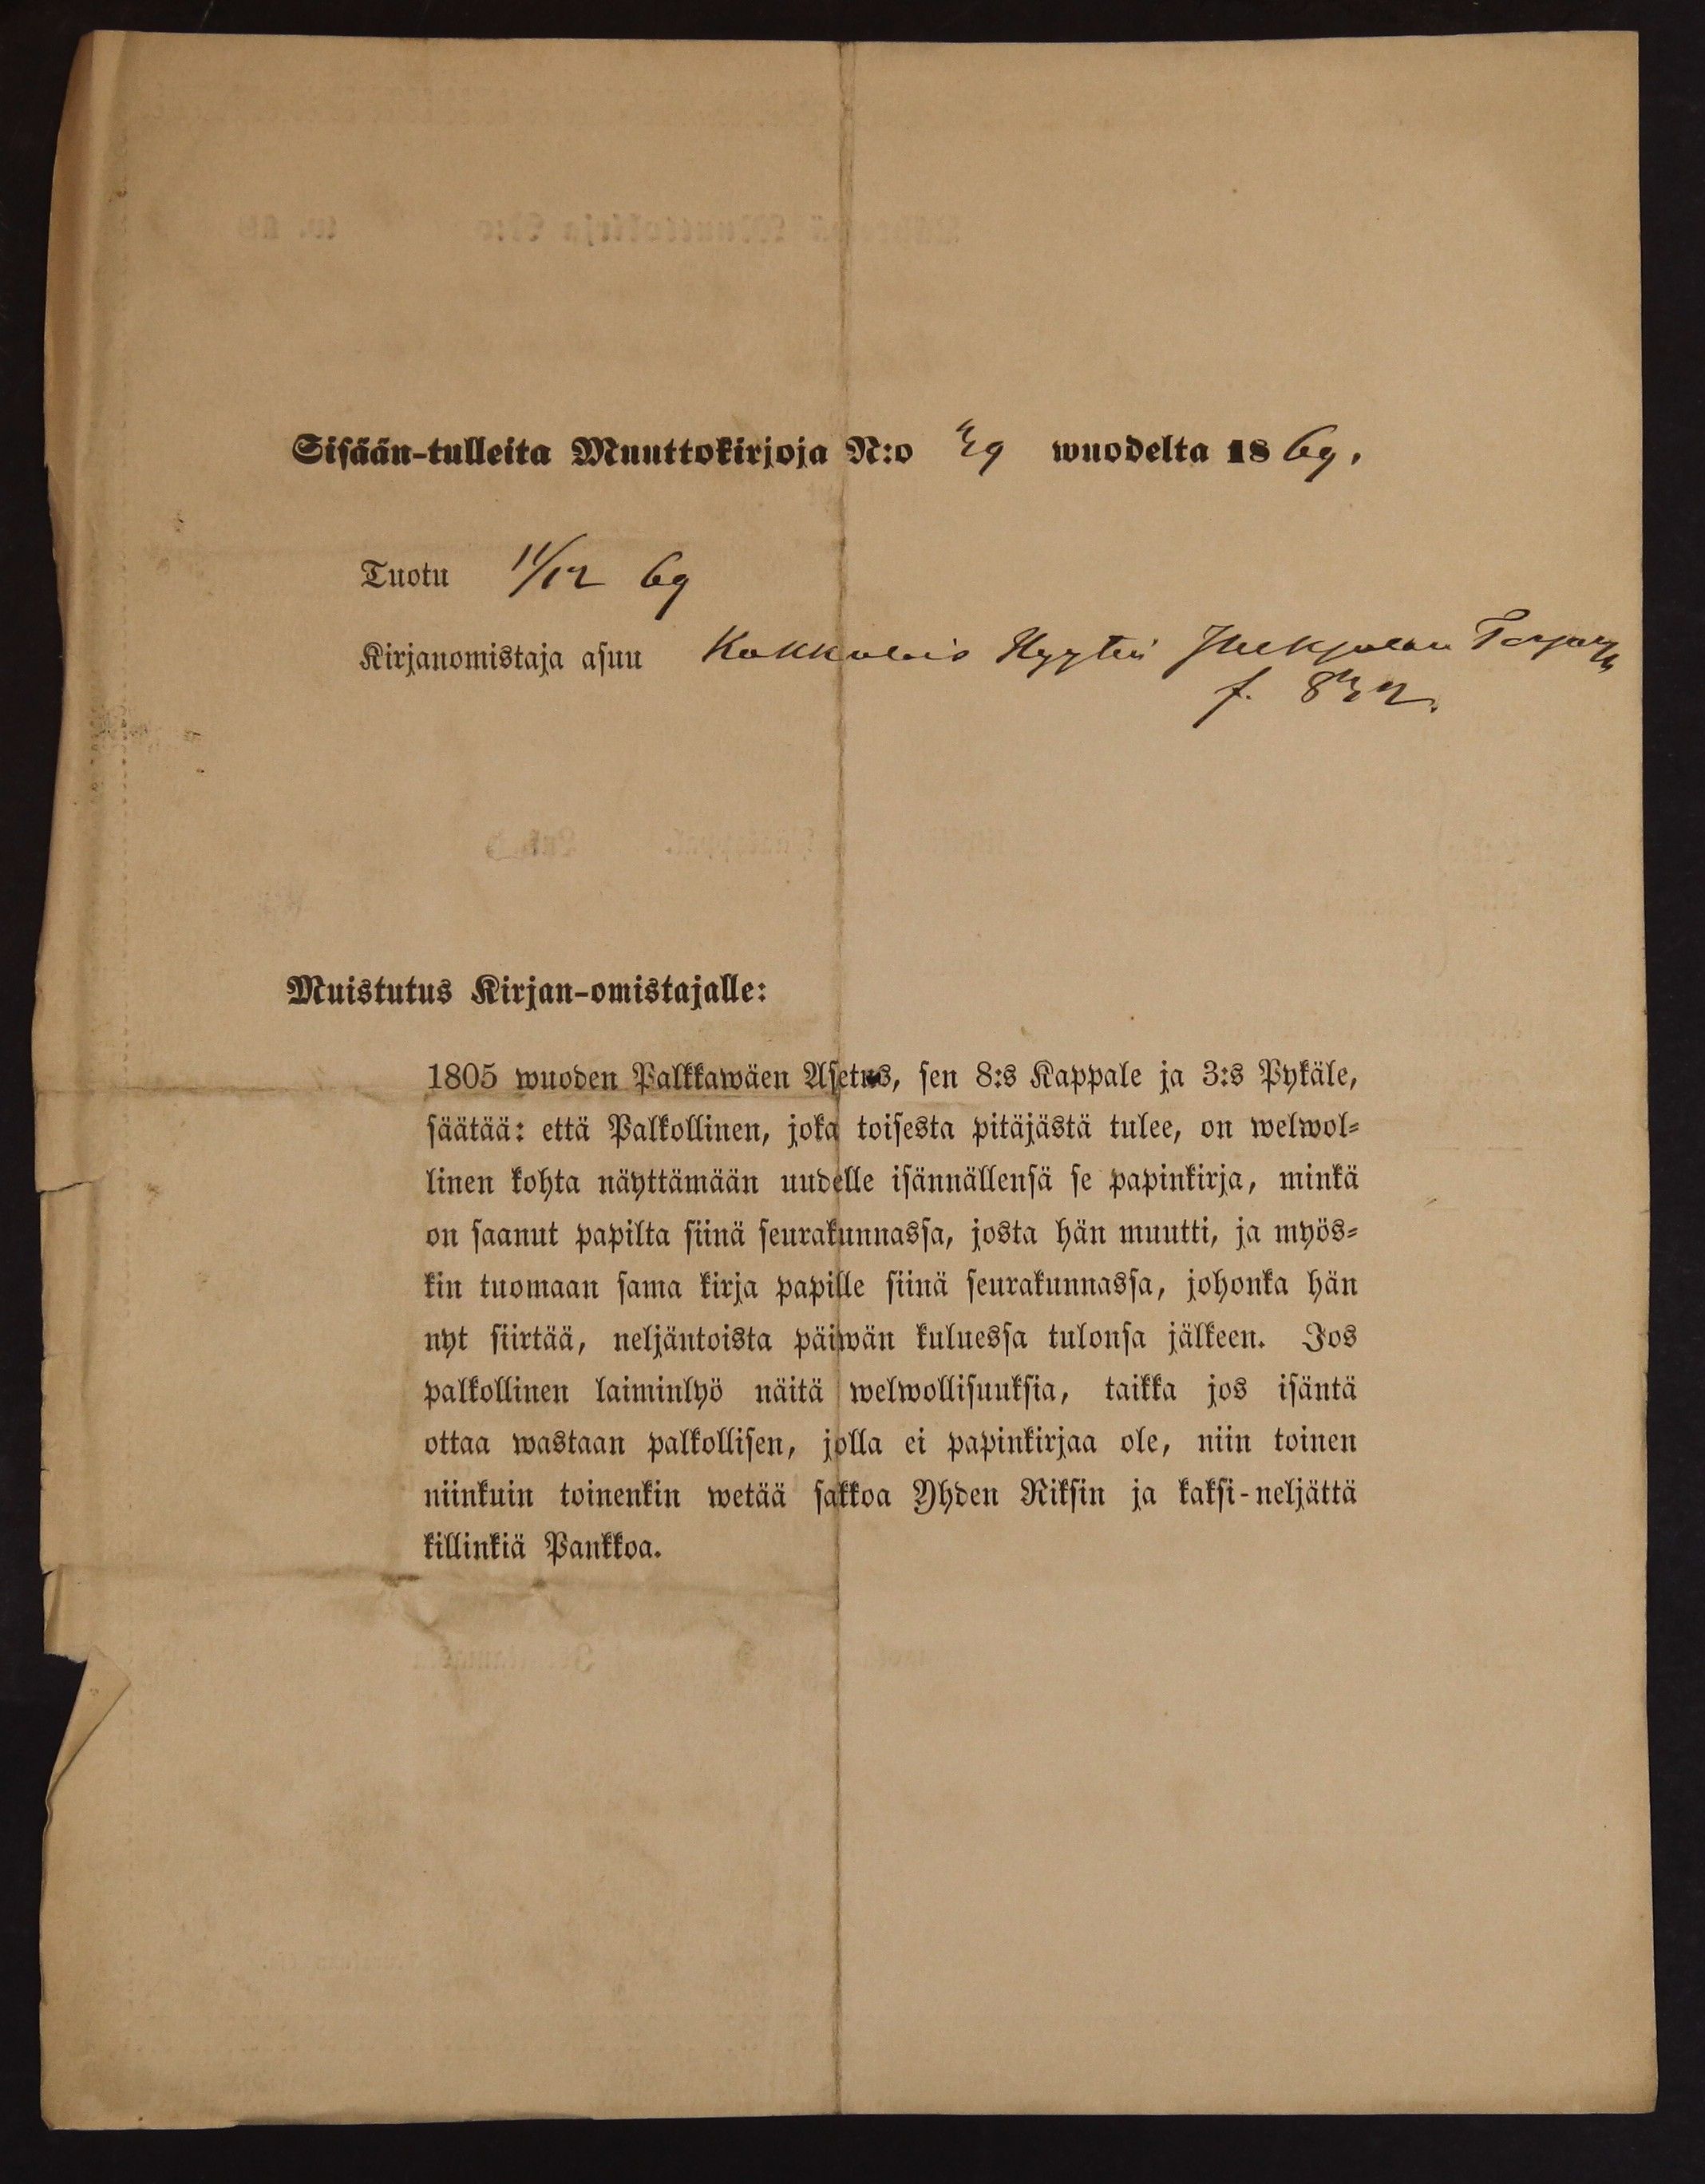 Sisään-tulleita Muuttokirjoja N:o 39 wuodelta 1869.
Tuotu 11/12 69
Kirjanomistaja asuu
f. 832.
Muistutus Kirjan-omistajalle:
1805 wuoden Palkkawäen Asetus, sen 8:s Kappale ja 3:s Pykäle,
säätää: että Palkollinen, joka toisesta pitäjästä tulee, on welwol-
linen kohta näyttämään uudelle isännällensä se papinkirja, minkä
on saanut papilta siinä seurakunnassa, josta hän muutti, ja myös-
kin tuomaan sama kirja papille siinä seurakunnassa, johonka hän
nyt siirtää, neljäntoista päiwän kuluessa tulonsa jälkeen. Jos
palkollinen laiminlyö näitä welwollisuuksia, taikka jos isäntä
ottaa wastaan palkollisen, jolla ei papinkirjaa ole, niin toinen
niinkuin toinenkin wetää sakkoa Yhden Riksin ja kaksi-neljättä
killinkiä Pankkoa.